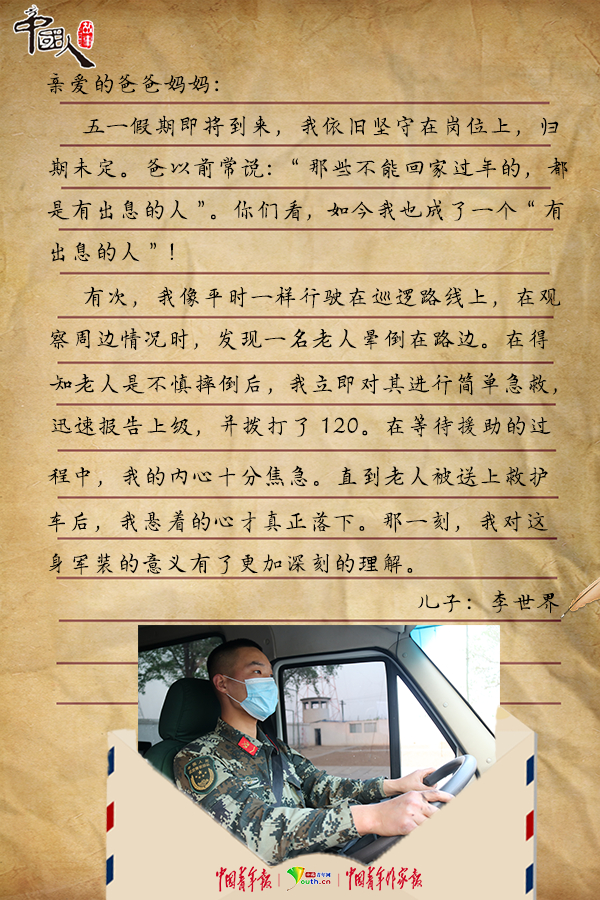 中國人
亲爱的爸爸妈妈：
五一假期即将到来，我依旧坚守在岗位上，归
期未定。爸以前常说：“那些不能回家过年的，都
是有出息的人”。你们看，如今我也成了一个“有
出息的人”！
有次，我像平时一样行驶在巡逻路线上，在观
察周边情况时，发现一名老人晕倒在路边。在得
知老人是不慎摔倒后，我立即对其进行简单急救，
迅速报告上级，并拨打了120。在等待援助的过
程中，我的内心十分焦急。直到老人被送上救护
车后，我悬着的心才真正落下。那一刻，我对这
身军装的意义有了更加深刻的理解。
儿子：李世界
中国青年报 中国青年网 Youth.cn 中国青年作家报